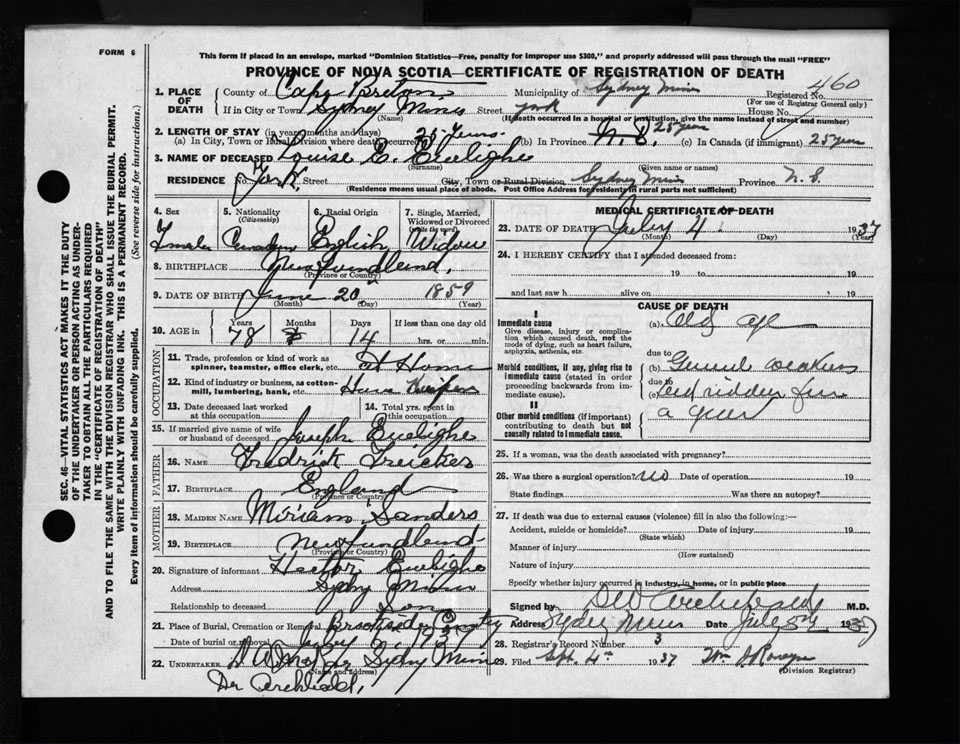 FORM 6
This form if placed in an envelope, marked "Dominion Statistics—Free, penalty for improper use $300," and properly addressed will pass through the mail "FREE"
PROVINCE OF NOVA SCOTIA—CERTIFICATE OF REGISTRATION OF DEATH
460
1. PLACE OF DEATH
County of Cape Breton Municipality of Sydney Mines Registered No.
(For use of Registrar General only)
If in City or Town Sydney Mines Street York House No.
(Name) (If death occurred in a hospital or institution, give the name instead of street and number)
2. LENGTH OF STAY (in years, months and days)
(a) In City, Town or Rural Division where death occurred 25 Years (b) In Province N.S. 25 years (c) In Canada (if immigrant) 25 years
3. NAME OF DECEASED Louise E.
(Surname) (Given name or names)
RESIDENCE No. York Street City, Town or Rural Division Sydney Mines Province N.S.
(Residence means usual place of abode. Post Office Address for residents in rural parts not sufficient)
4. Sex 5. Nationality 6. Racial Origin 7. Single, Married, Widowed or Divorced
(Citizenship) (write the word)
Female Canadian English Widow
8. BIRTHPLACE Newfoundland
(Province or Country)
9. DATE OF BIRTH June 20 1859
(Month) (Day) (Year)
10. AGE in Years Months Days If less than one day old
78 14 hrs. or min.
OCCUPATION
11. Trade, profession or kind of work as spinner, teamster, office clerk, etc. At Home
12. Kind of industry or business, as cotton-mill, lumbering, bank, etc.
13. Date deceased last worked at this occupation
14. Total yrs. spent in this occupation
15. If married give name of wife or husband of deceased Joseph
FATHER
16. NAME Fredrick
17. BIRTHPLACE England
(Province or Country)
MOTHER
18. MAIDEN NAME Miriam Sanders
19. BIRTHPLACE Newfundland
(Province or Country)
20. Signature of informant Hector
Address Sydney Mines
Relationship to deceased Son
21. Place of Burial, Cremation or Removal
Date of burial or removal 1937
22. UNDERTAKER Sydney Mines
(Name and Address)
Dr Archibald
MEDICAL CERTIFICATE OF DEATH
23. DATE OF DEATH July 4 1937
(Month) (Day) (Year)
24. I HEREBY CERTIFY that I attended deceased from:
19 to 19
and last saw h alive on 19
CAUSE OF DEATH
I
Immediate cause
Give disease, injury or complication which caused death, not the mode of dying, such as heart failure, asphyxia, asthenia, etc.
(a) Old age
due to
Morbid conditions, if any, giving rise to immediate cause (stated in order proceeding backwards from immediate cause).
(b) General weakness
due to
(c) bed ridden for
a year
II
Other morbid conditions (if important) contributing to death but not causally related to immediate cause.
25. If a woman, was the death associated with pregnancy?
26. Was there a surgical operation? no Date of operation 19
State findings Was there an autopsy?
27. If death was due to external causes (violence) fill in also the following:—
Accident, suicide or homicide? Date of injury 19
(State which)
Manner of injury
(How sustained)
Nature of injury
Specify whether injury occurred in industry, in home, or in public place
Signed by Archibald M.D.
Address Sydney Mines Date July 5th 1937
28. Registrar's Record Number 3
29. Filed Sept. 4th 1937 Wm
(Division Registrar)
SEC. 46—VITAL STATISTICS ACT MAKES IT THE DUTY
OF THE UNDERTAKER OR PERSON ACTING AS UNDER-
TAKER TO OBTAIN ALL THE PARTICULARS REQUIRED
IN THE "CERTIFICATE OF REGISTRATION OF DEATH"
AND TO FILE THE SAME WITH THE DIVISION REGISTRAR WHO SHALL ISSUE THE BURIAL PERMIT.
WRITE PLAINLY WITH UNFADING INK. THIS IS A PERMANENT RECORD.
Every item of information should be carefully supplied. (See reverse side for instructions.)